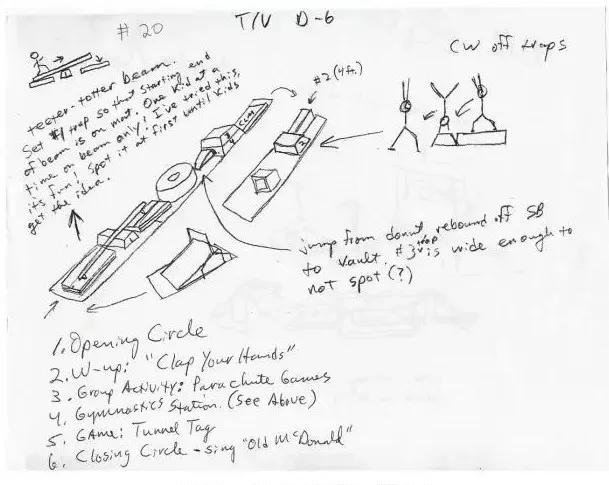 # 20
T/V D-6
CW off traps
#2 (4ft.)
teeter-totter beam.
Set #1 trap so that starting end
of beam is on mat. One kid at a
time on beam only; I've tried this,
it's fun! Spot it at first until kids
get the idea.
2
jump from donut, rebound off SB
to vault. #3 trap is wide enough to
not spot (?)
1. Opening Circle
2. W-up: "Clap Your Hands"
3. Group Activity: Parachute Games
4. Gymnastics Station. (See Above)
5. GAme: Tunnel Tag
6. Closing Circle - sing "Old McDonald"